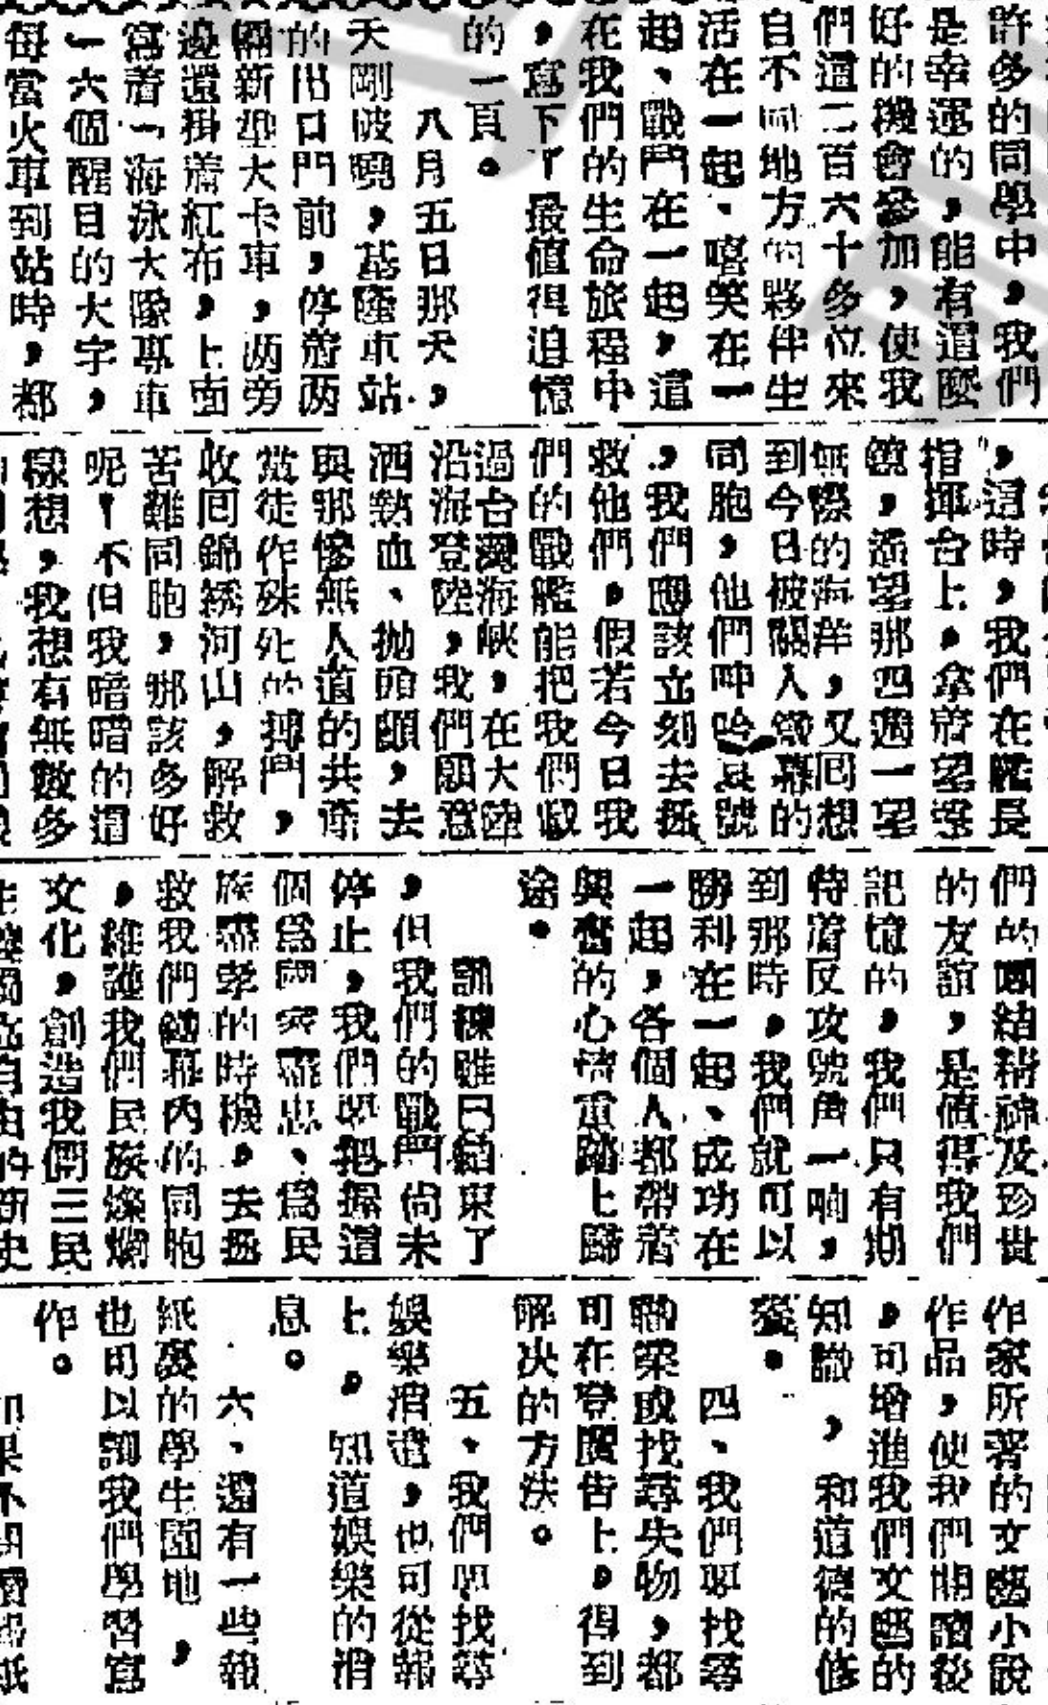 許多的同學中，我們
是幸運的，能有這麼
好的機會參加，使我
們這二百六十多位來
自不同地方的夥伴生
活在一起、嘻笑在一
起、戰鬥在一起，這
在我們的生命旅程中
，寫下了最值得追憶
的一頁。
八月五日那天，
天剛破曉，基隆車站
的出口門前，停着两
輛新型大卡車，两旁
邊還掛着紅布，上面
寫着「海泳大隊專車
」六個醒目的大字，
每當火車到站時，都
，這時，我們在艦長
指揮台上，拿着望遠
鏡，遙望那四週一望
無際的海洋，又回想
到今日被關入鐵幕的
同胞，他們呻吟哀號
，我們應該立刻去拯
救他們。假若今日我
們的戰艦能把我們載
過台灣海峽，在大陸
沿海登陸，我們願意
洒熱血、拋頭顱，去
與那慘無人道的共產
黨徒作殊死的搏鬥，
收回錦綉河山，解救
苦難同胞，那該多好
呢！不但我暗暗的這
樣想，我想有無數多
們的團結精神及珍貴
的友誼，是值得我們
記憶的，我們只有期
待着反攻號角一响，
到那時，我們就可以
勝利在一起、成功在
一起，各個人都帶着
興奮的心情重踏上歸
途。
訓練雖已結束了
，但我們的戰鬥尚未
停止，我們要把握這
個爲國家盡忠、爲民
族盡孝的時機，去拯
救我們鐵幕內的同胞
，維護我們民族燦爛
文化，創造我們三民
獨立自由的新史
作家所著的文藝小說
作品，使我們閱讀後
，可增進我們文藝的
知識，和道德的修
養。
四、我們要找尋
職業或找尋失物，都
可在登廣告上。得到
解决的方法。
五、我們要找尋
娛樂消遣，也可從報
上，知道娛樂的消
息。
六、還有一些報
紙裏的學生園地，
也可以讓我們學習寫
作。
如果不閱讀報紙